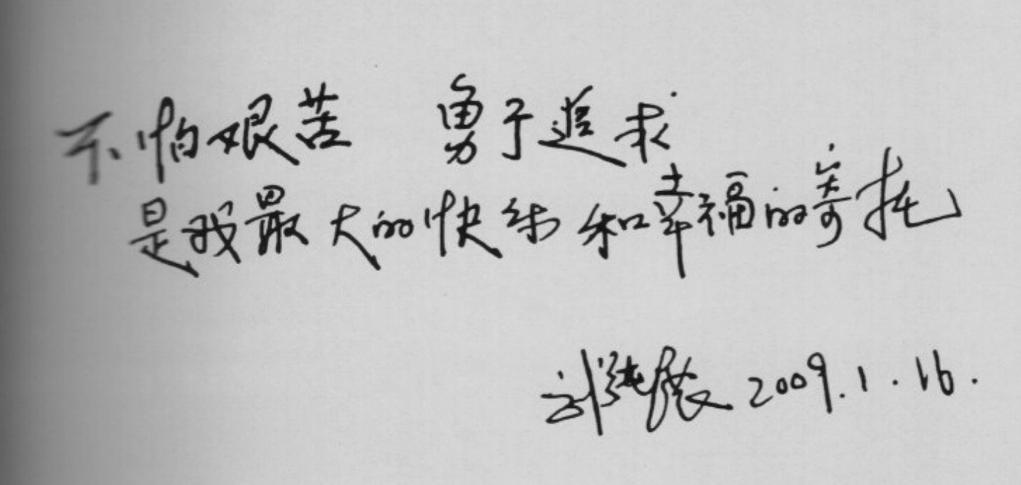 不怕艰苦 勇于追求
是我最大的快乐和幸福的寄托
刘 2009.1.16.